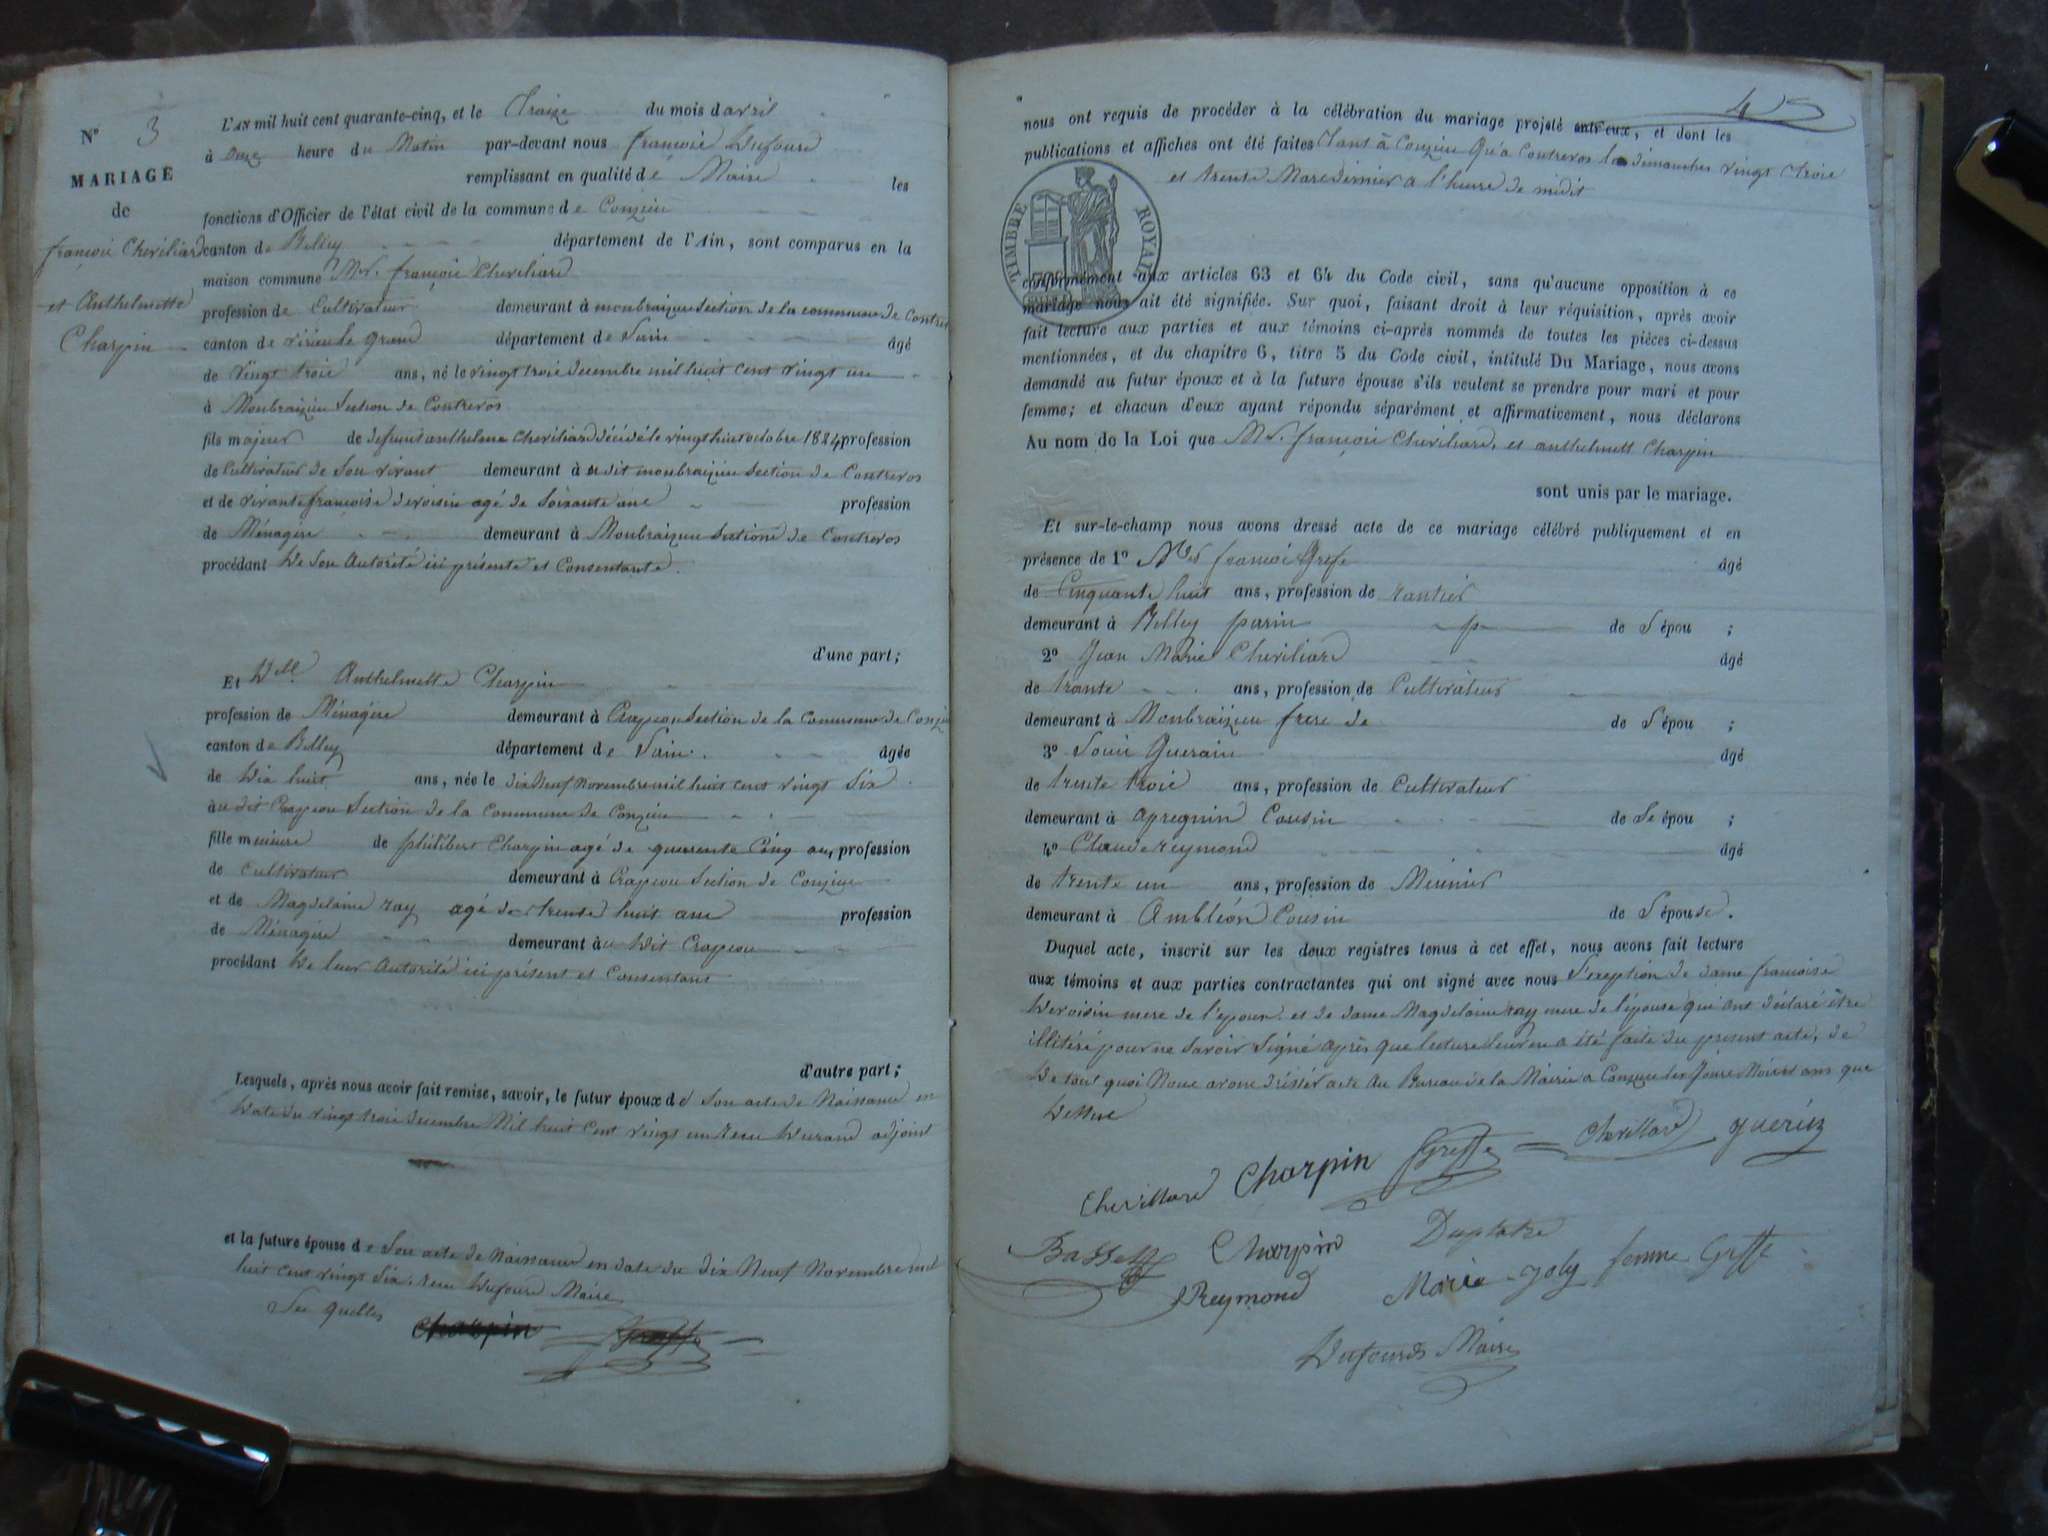 N° 3
MARIAGE
de
françois Chevilliard
et Anthelmette
Charpin
L'AN mil huit cent quarante-cinq, et le Traize du mois d avril
à onze heure du Matin par-devant nous françois Dufourd
remplissant en qualité de Maire les
fonctions d'Officier de l'état civil de la commune de Conzieu
canton de Belley département de l'Ain, sont comparus en la
maison commune Mr. françois Cheviliard
profession de Cultivateur demeurant à monbraizieu section de la commune de Contrevos
canton de virieu le grand département de l'ain âgé
de vingt trois ans, né le vingt trois decembre mil huit cent vingt un
à Monbraizieu Section de Contrevos
fils majeur de defunt anthelme Cheviliard décédé le vingt huit octobre 1824 profession
de Cultivateur de Son vivant demeurant à u dit monbraizieu Section de Contrevos
et de vivante françoise devoisin agé de Soixante ans profession
de Ménagère demeurant à Monbraizieu Section de Contrevos
procédant De Son Autorité ici présente et Consentante.
d'une part;
Et Delle Anthelmette Charpin
profession de Ménagère demeurant à Crapeou Section de la Commune de Conzieu
canton de Belley département de l'ain. âgée
de Dix huit ans, née le dix Neuf Novembre mil huit cent vingt Six
à u dit Crapeou Section de la Commune de Conzieu
fille meineure de philibert Charpin agé de quarente Cinq ans profession
de Cultivateur demeurant à Crapeou Section de Conzieu
et de Magdelaine ray agé de trente huit ans profession
de Ménagère demeurant à u Dit Crapeou
procédant De leur Autorité ici présent et Consentans
d'autre part;
Lesquels, après nous avoir fait remise, savoir, le futur époux de Son acte de Naissance en
Date du vingt trois decembre Mil huit cent vingt un reçu Durand adjoint
et la future épouse de Son acte de Naissance en date du dix Neuf Novembre mil
huit cent vingt Six. reçu Dufourd Maire
Les quelles
Charpin Greffe
45
nous ont requis de procéder à la célébration du mariage projeté entr'eux, et dont les
publications et affiches ont été faites Tant à Conzieu Qu'a Contrevos les dimanches vingt trois
et trente Mars dernier a l'heure de midit
TIMBRE ROYAL
conformément aux articles 63 et 64 du Code civil, sans qu'aucune opposition à ce
mariage nous ait été signifiée. Sur quoi, faisant droit à leur réquisition, après avoir
fait lecture aux parties et aux témoins ci-après nommés de toutes les pièces ci-dessus
mentionnées, et du chapitre 6, titre 5 du Code civil, intitulé Du Mariage, nous avons
demandé au futur époux et à la future épouse s'ils veulent se prendre pour mari et pour
femme; et chacun d'eux ayant répondu séparément et affirmativement, nous déclarons
Au nom de la Loi que Mr. françois Cheviliard, et anthelmett Charpin
sont unis par le mariage.
Et sur-le-champ nous avons dressé acte de ce mariage célébré publiquement et en
présence de 1° françois Grefe âgé
de Cinquante huit ans, profession de rantier
demeurant à Belley parin de l'épou ;
2° Jean Marie Cheviliard âgé
de trante ans, profession de Cultivateur
demeurant à Monbraizieu frere de de l'épou ;
3° Louis Guerain âgé
de trente trois ans, profession de Cultivateur
demeurant à apregnin Cousin de Le épou ;
4° Claude reymond âgé
de trente un ans, profession de Meunier
demeurant à Ambléon Cousin de l'épouse.
Duquel acte, inscrit sur les deux registres tenus à cet effet, nous avons fait lecture
aux témoins et aux parties contractantes qui ont signé avec nous l'exeption de dame francoise
Devoisin mere de l'epoux. et de dame Magdelaine ray mere de l'épouse qui ont déclaré être
illitéré pour ne Savoir Signé après que lecture leur en a été faite du present acte, de
De tout quoi Nous avons dressér acte Au Bureau de la Mairie a Conzieu les Jours Mois et ans que
Dessus
Chevillard Charpin Greffe Chevillard guerin
Basset Charpin
Reymond Marie Joly femme Greffe
Dufourd Maire